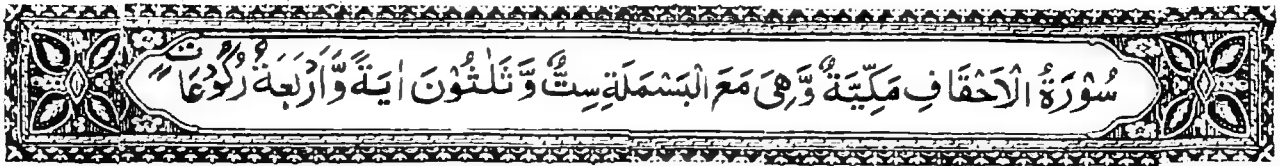 سُوْرَةُ الْاَحْقَافِ مَكِّيَّةٌ وَّهِیَ مَعَ الْبَسْمَلَةِ سِتٌّ وَّ ثَلٰثُوْنَ اٰیَةً وَّاَرْبَعَةُ رُكُوْعَاتٍ